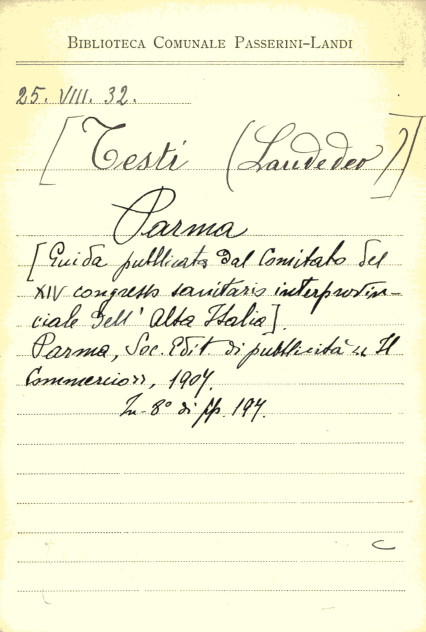 BIBLIOTECA COMUNALE PASSERINI-LANDI
25. VIII. 32.
[Testi (Laudedeo)]
Parma
[Guida pubblicata dal Comitato del
XIV congresso sanitario interprovin-
ciale dell' Alta Italia].
Parma, Soc. Edit. di pubblicità "Il
Commercio", 1907.
In-8° di pp. 197.
C